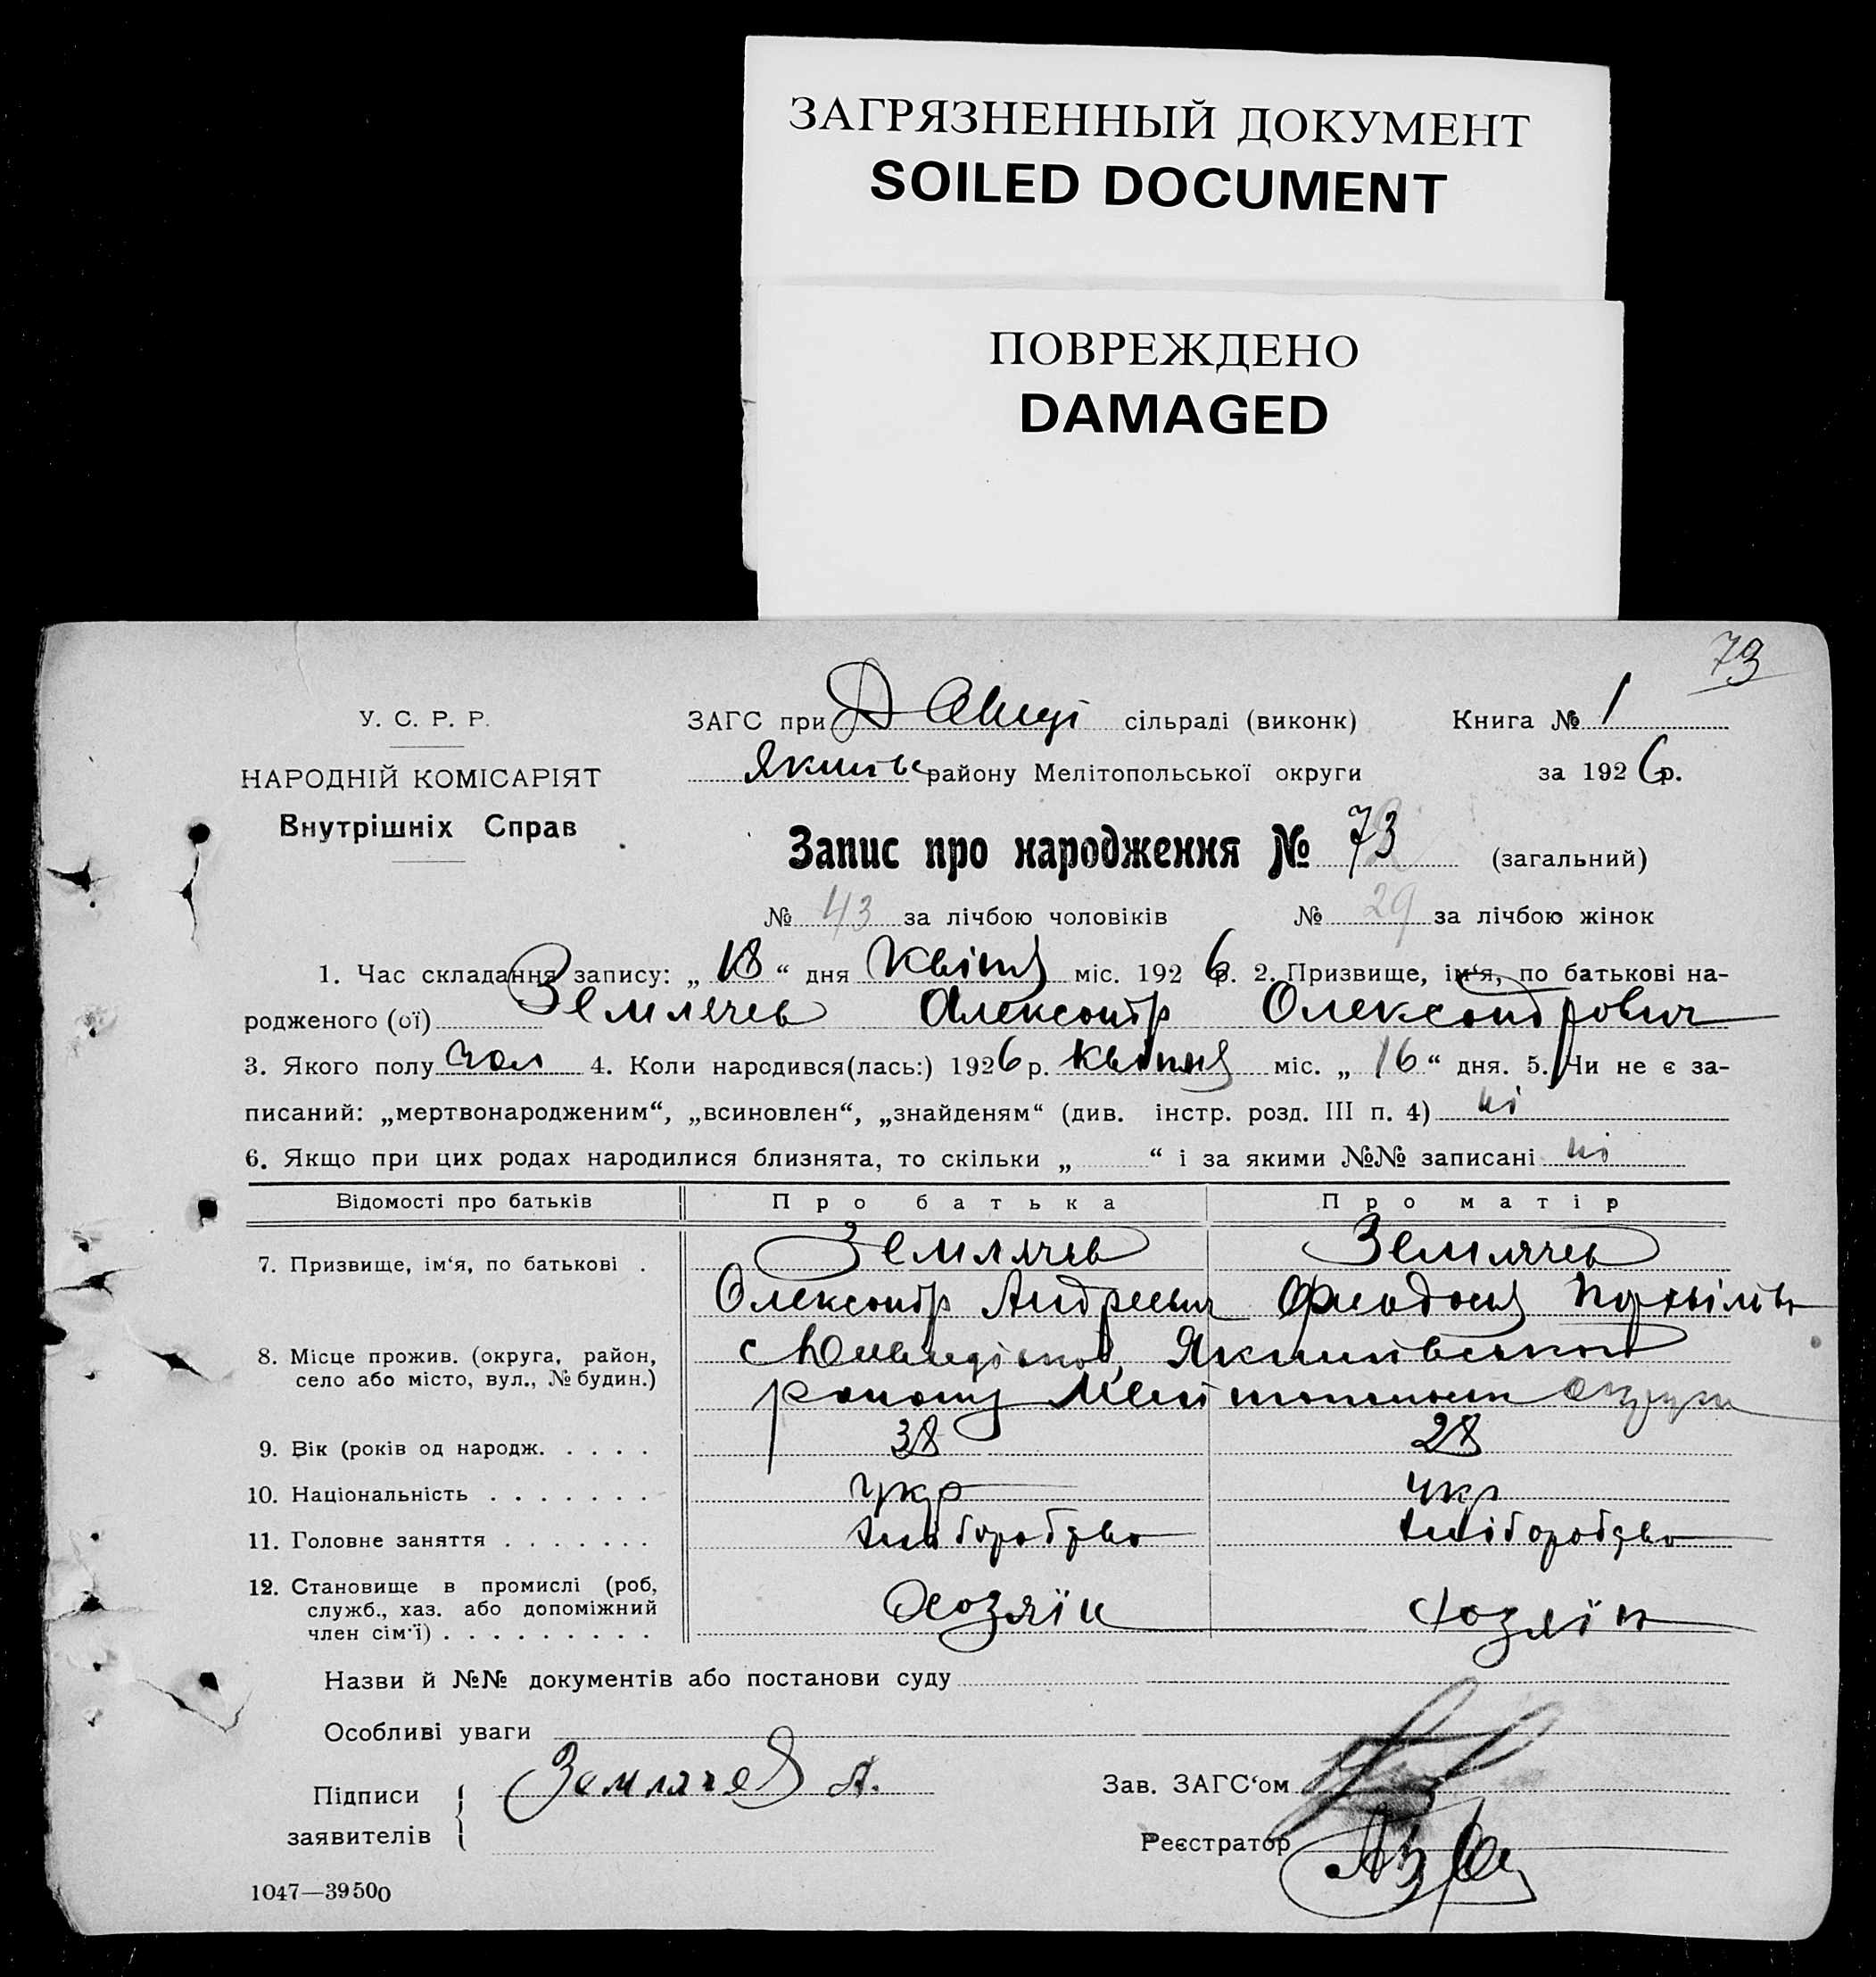 ЗАГРЯЗНЕННЫЙ ДОКУМЕНТ
SOILED DOCUMENT
ПОВРЕЖДЕНО
DAMAGED
73
У. С. Р. Р.
НАРОДНІЙ КОМІСАРІЯТ
Внутрішніх Справ
ЗАГС при сільраді (виконк) Книга № 1
району Мелітопольської округи за 1926р.
Запис про народження № 73 (загальний)
№ 43 за лічбою чоловіків № 29 за лічбою жінок
1. Час складання запису: „ 18 “ дня Квітня міс. 1926 р. 2. Призвище, ім‘я, по батькові на-
родженого (ої) Землячев Олександр Олександрович
3. Якого полу чол 4. Коли народився(лась:) 1926 р. квітня міс. „ 16 “ дня. 5. Чи не є за-
писаний: „мертвонародженим“, „всиновлен“, „знайденям“ (див. інстр. розд. III п. 4) ні
6. Якщо при цих родах народилися близнята, то скільки „ “ і за якими №№ записані ні
Відомості про батьків Про батька Про матір
7. Призвище, ім‘я, по батькові . Землячев Землячев
Олександр Андреевич Феодосія
8. Місце прожив. (округа, район, с Якимівського
село або місто, вул., № будин.) району округи
9. Вік (років од народж. . . . . 38 28
10. Національність . . . . . . . укр укр
11. Головне заняття . . . . . . . хліборобство хліборобство
12. Становище в промислі (роб,
служб., хаз. або допоміжний Хозяїн хозяїн
член сім‘ї) . . . . . . . . .
Назви й №№ документів або постанови суду
Особливі уваги
Підписи Землячев А. Зав. ЗАГС‘ом
заявителів Реєстратор
1047—39500